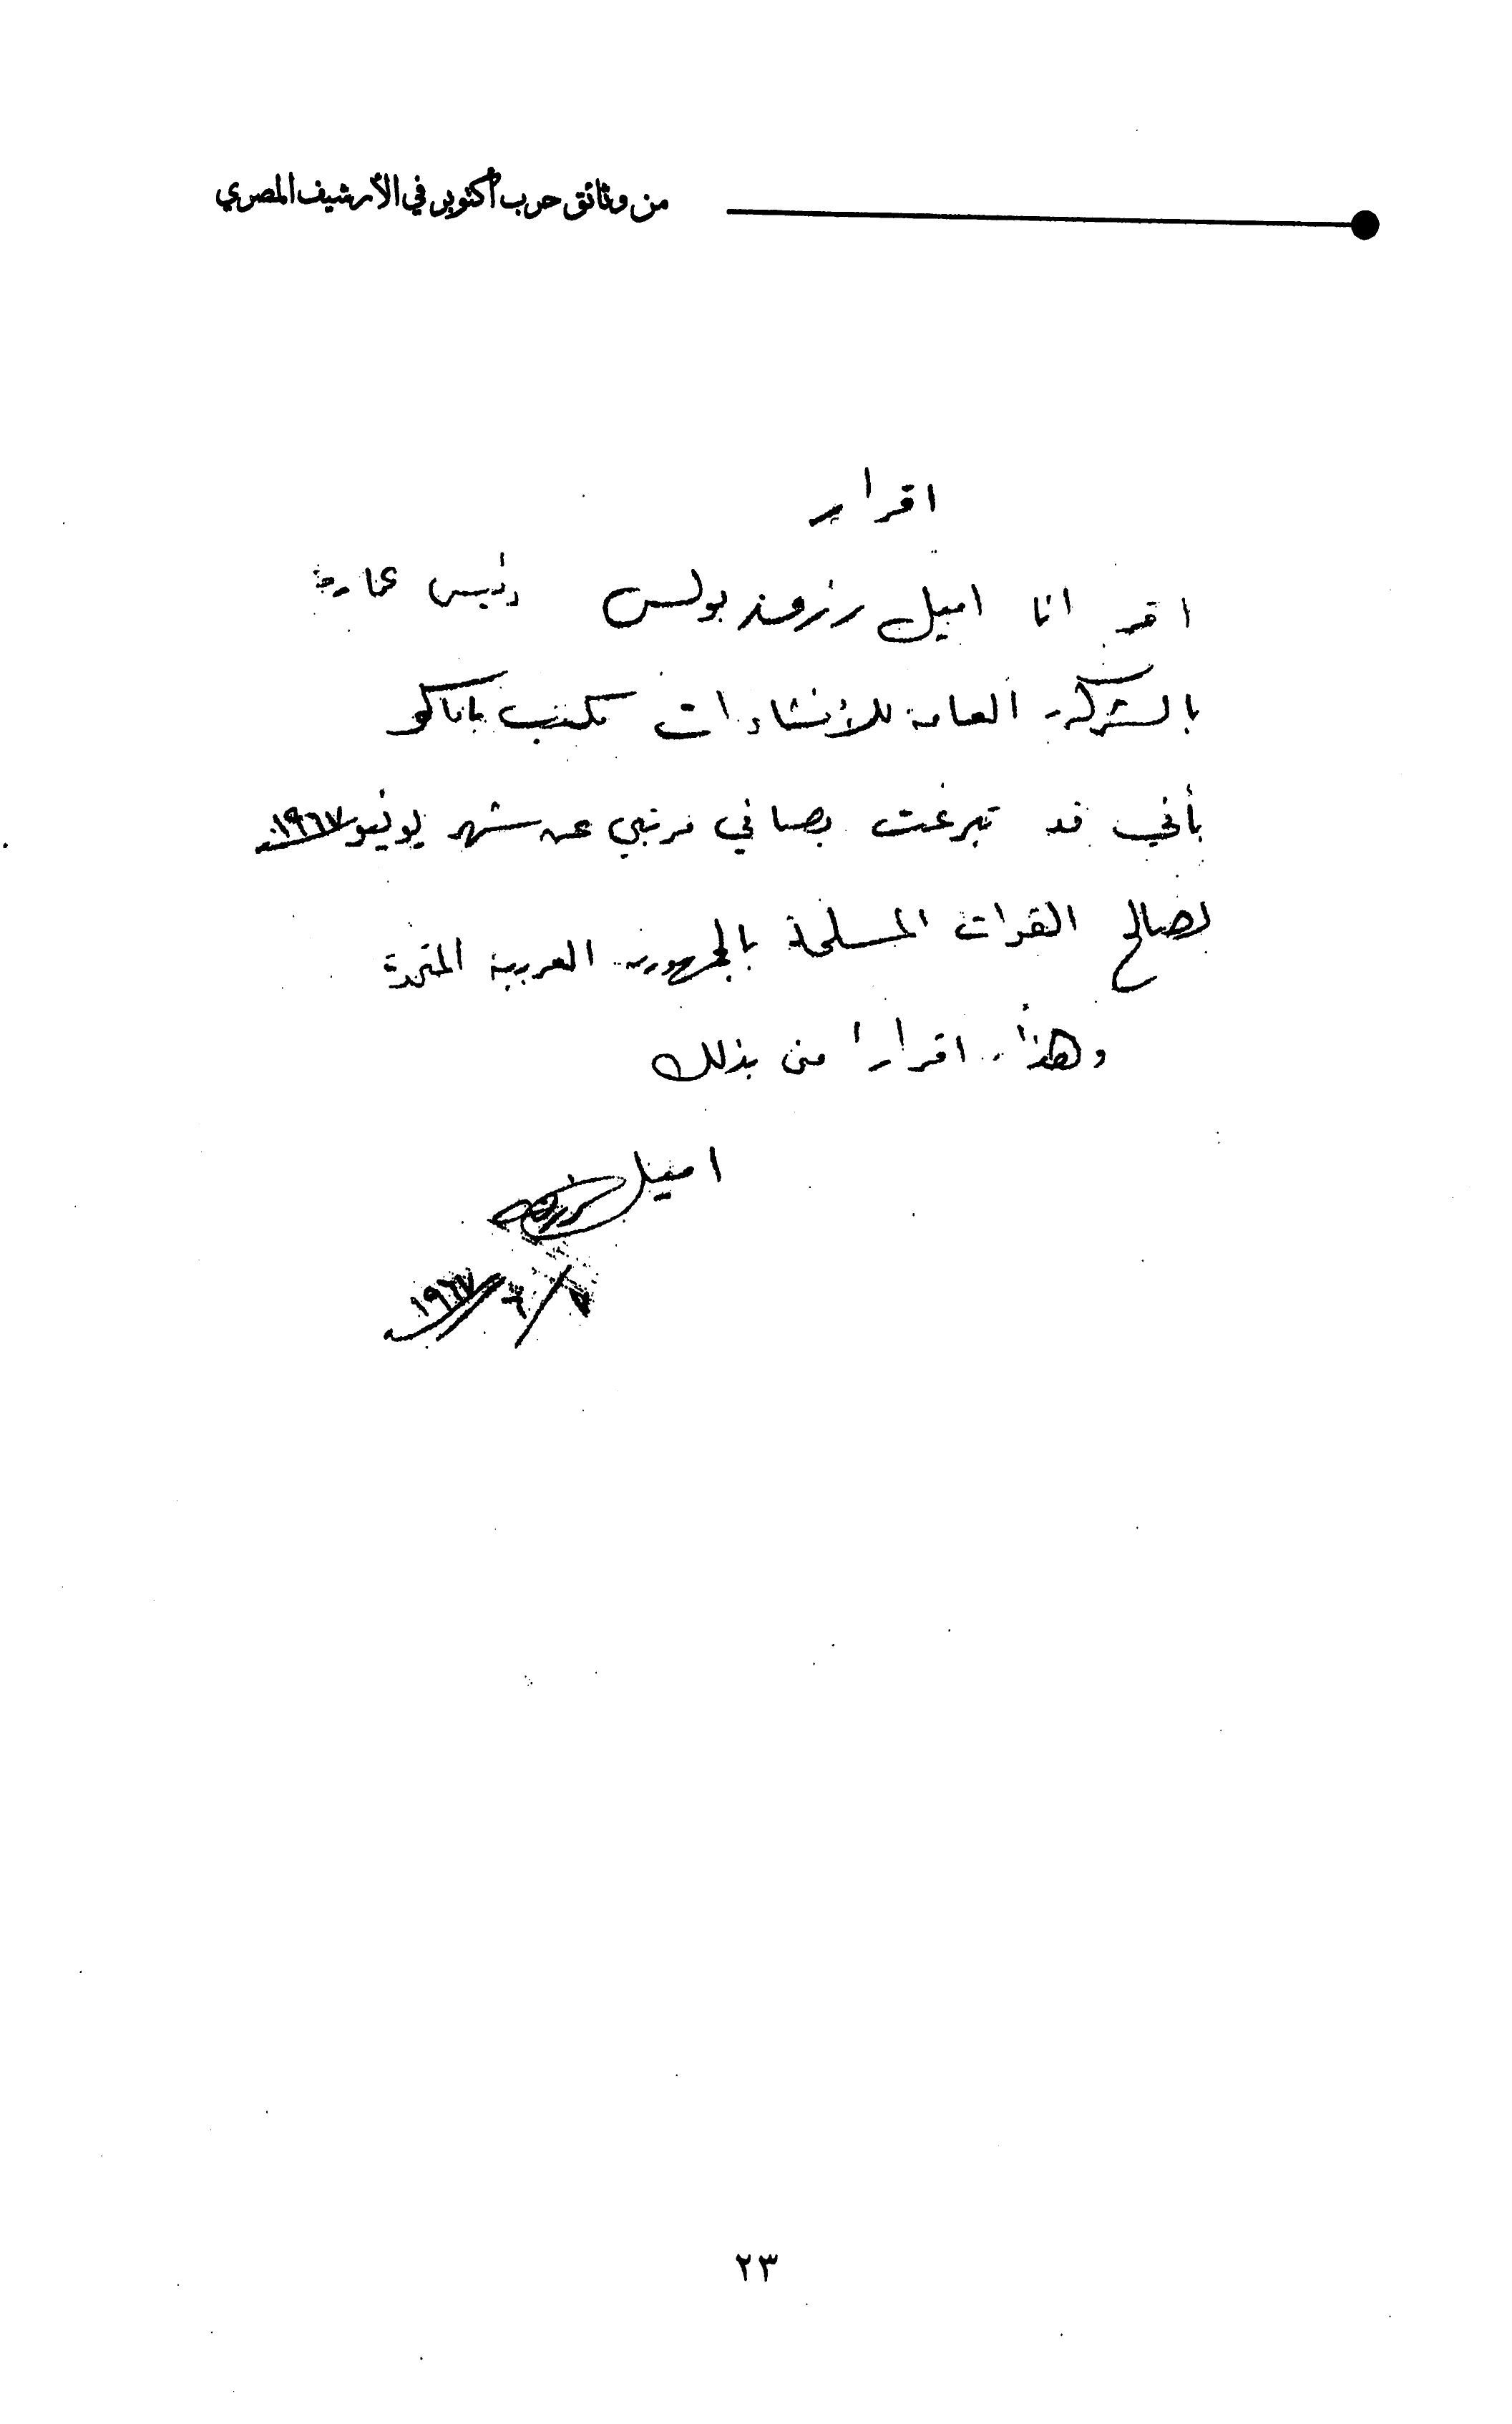 من وثائق حرب أكتوبر في الأرشيف المصري
اقرار
اقر انا اميل رزق بولس رئيس عمارة
بالشركة العامة للأنشاءات مكتب باماكو
بأني قد تبرعت بصافي مرتبي عن شهر يونيو ١٩٦٧
لصالح القوات المسلحة بالجمهورية العربية المتحدة
وهذا اقرارا مني بذلك
اميل رزق
٦/١٩٦٧
٢٣